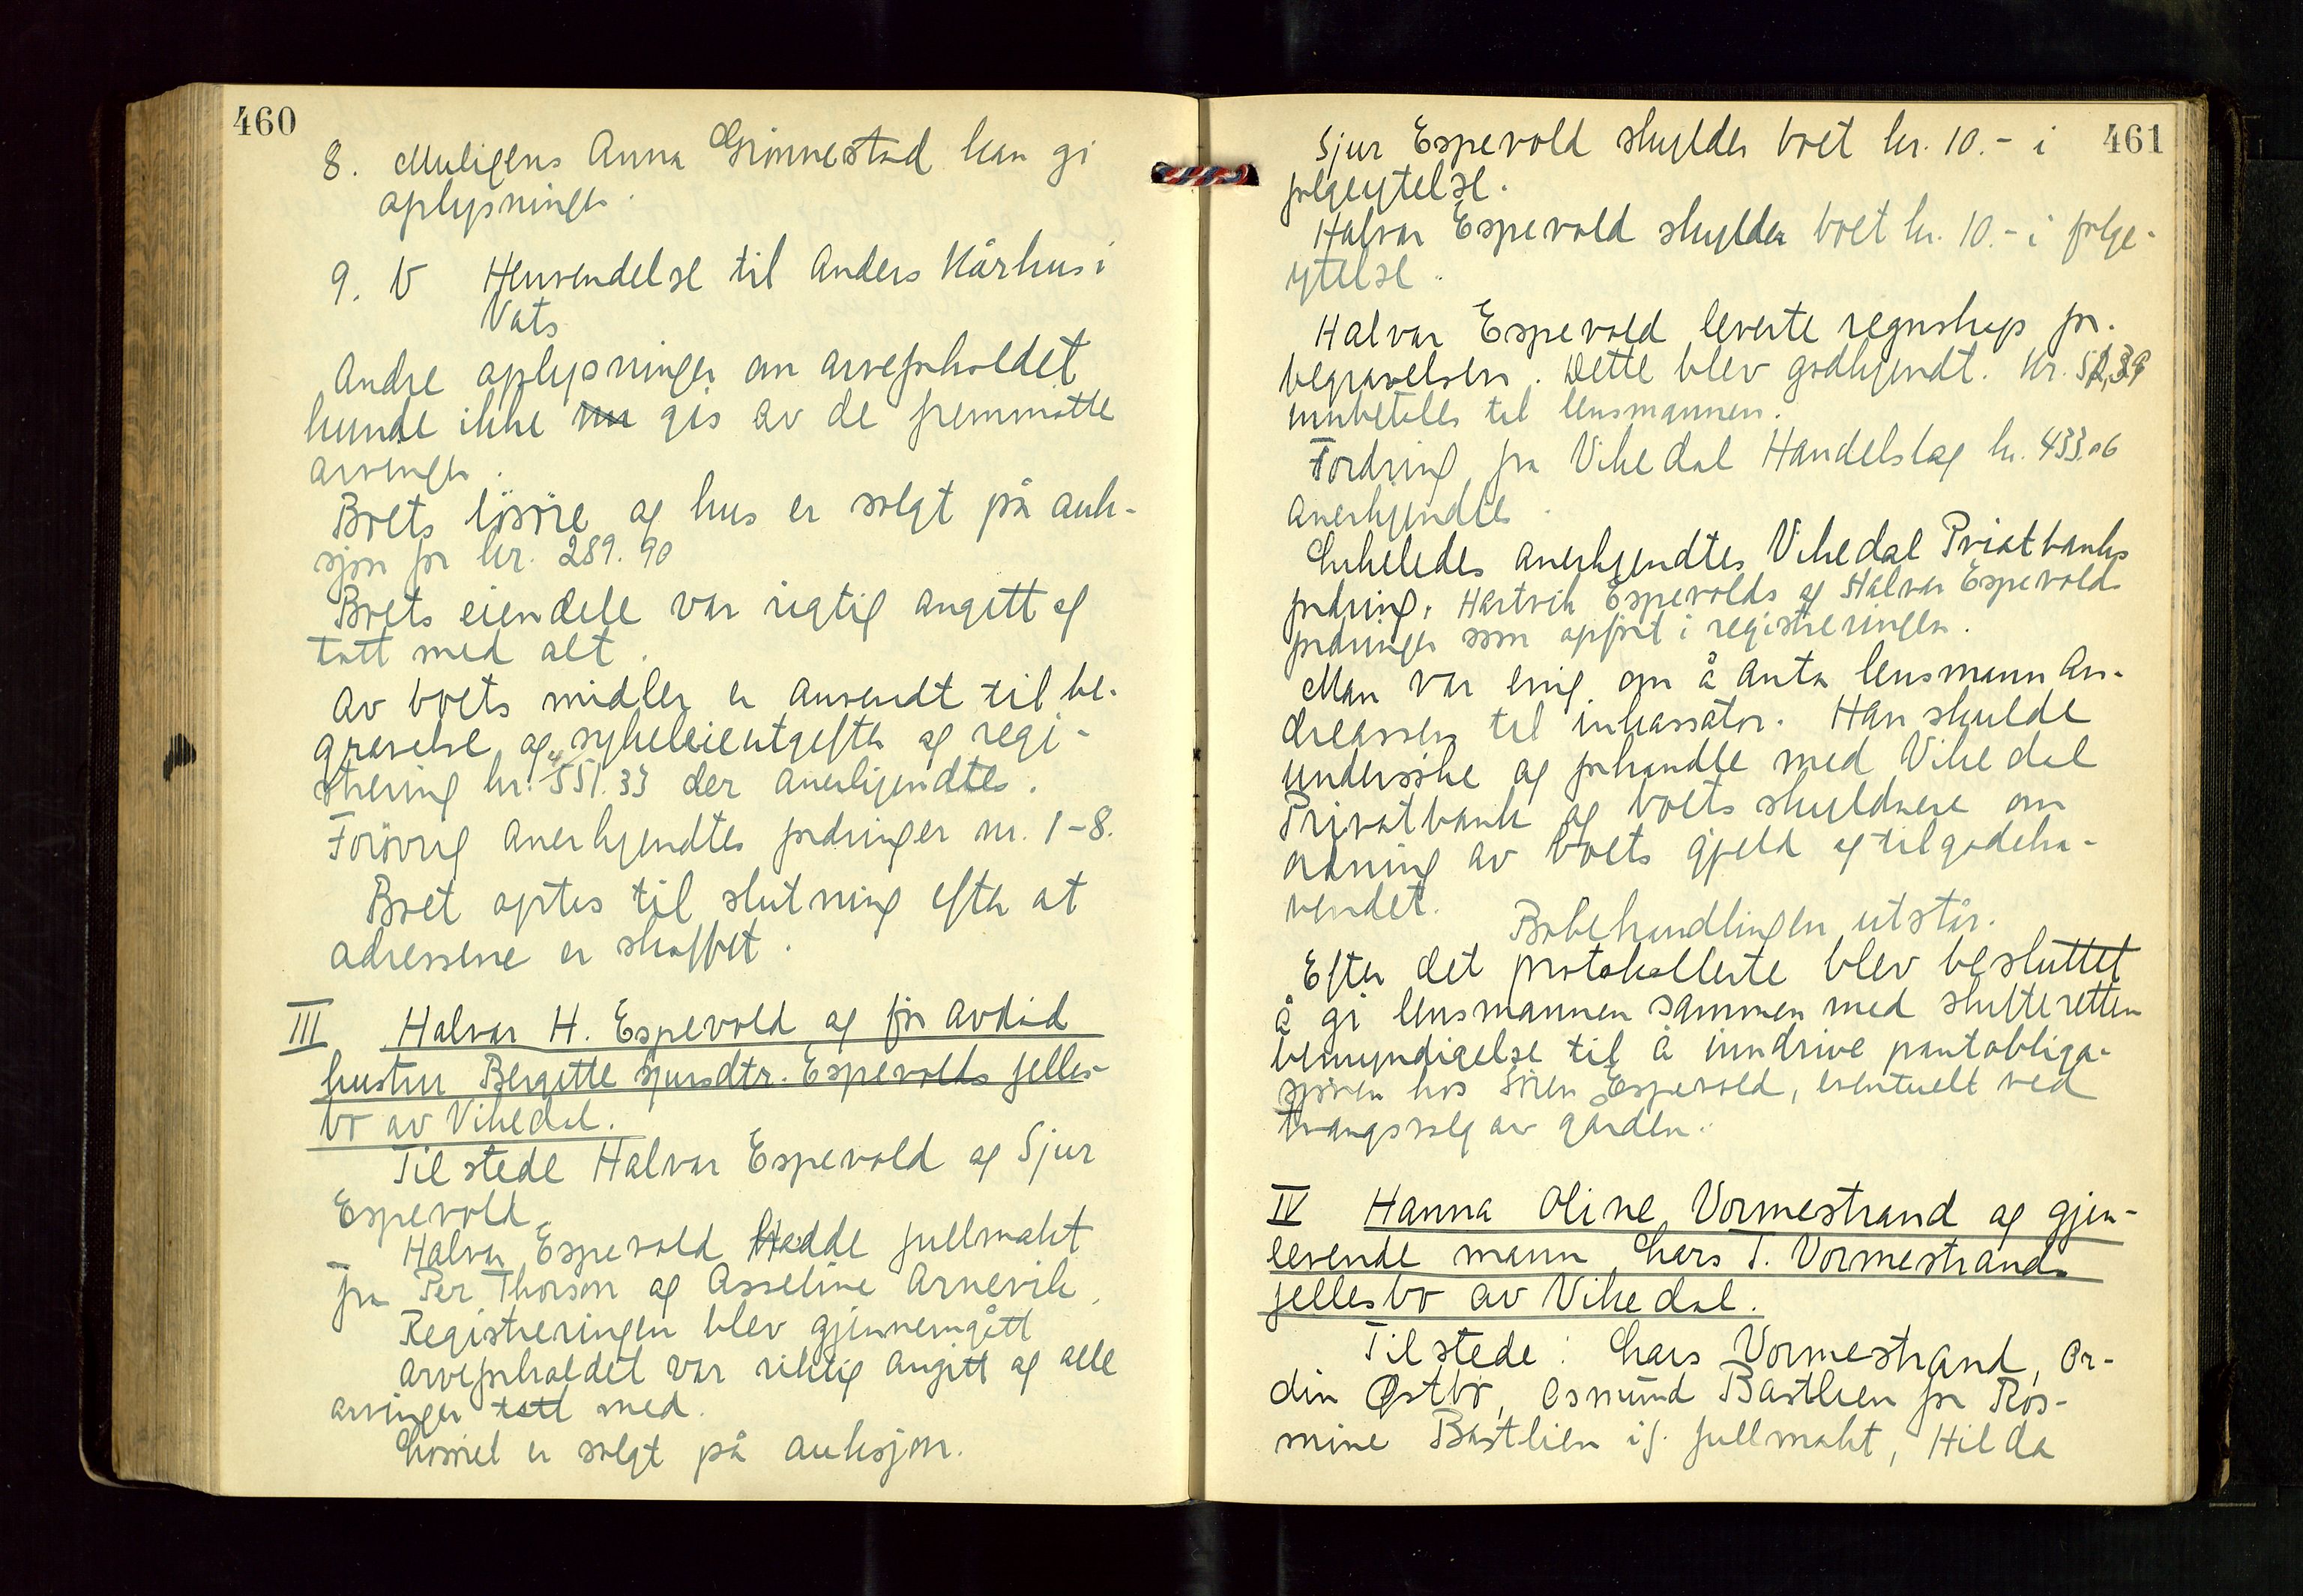 460
8. Muligens Anna Grönnestad kan gi
oplysninger.
9. V Henvendelse til Anders Kårhus i
Vats
Andre oplysninger om arveforholdet
kunde ikke gis av de fremmøtte
arvinger.
Boets lösöre og hus er solgt på auk-
sjon for kr. 289.90
Boets eiendele var rigtig angitt og
tatt med alt.
Av boets midler er anvendt til be-
gravelse og sykeleieutgifter og regi-
strering kr. 551.33 der anerkjendtes.
Forövrig anerkjendtes fordringer nr. 1-8.
Boet optes til slutning efter at
adressene er skaffet.
III Halvar H. Espevold og før avdöd
hustru Bergitte Sjursdtr. Espevolds felles-
bo av Vikedal.
Tilstede Halvar Espevold og Sjur
Espevold.
Halvar Espevold hadde fullmakt
fra Per Thorson og Asseline Arnevik.
Registreringen blev gjennemgått
Arveforholdet var riktig angitt og alle
arvinger tatt med.
Lösöret er solgt på auksjon.
461
Sjur Espevold skylder boet kr. 10.- i
folgeytelse.
Halvar Espevold skylder boet kr. 10.- i folge-
ytelse.
Halvar Espevold leverte regnskap for
begravelsen. Dette blev godkjendt. Kr. 52,39
innbetales til lensmannen.
Fordring fra Vikedal Handelslag kr. 433.06
anerkjendtes.
Likeledes anerkjendtes Vikedal Privatbanks
fordring. Hartvik Espevolds og Halvar Espevolds
fordringer som opført i registreringen.
Man var enig om å anta lensmann An-
dreassen til inkassator. Han skulde
undersöke og forhandle med Vikedal
Privatbank og boets skyldnere om
ordning av boets gjeld og tilgodeha-
vendet.
Bobehandlingen utstår.
Efter det protokollerte blev besluttet
å gi lensmannen sammen med skifteretten
bemyndigelse til å inndrive pantobliga-
sjonen hos Sören Espevold, eventuelt ved
tvangssalg av gården.
IV Hanna Oline Vormestrand og gjen-
levende mann Lars T. Vormestrands
fellesbo av Vikedal.
Tilstede: Lars Vormestrand, Or-
din Østbö, Osmund Bastlien for Ros-
mine Bastlien if. fullmakt, Hilda